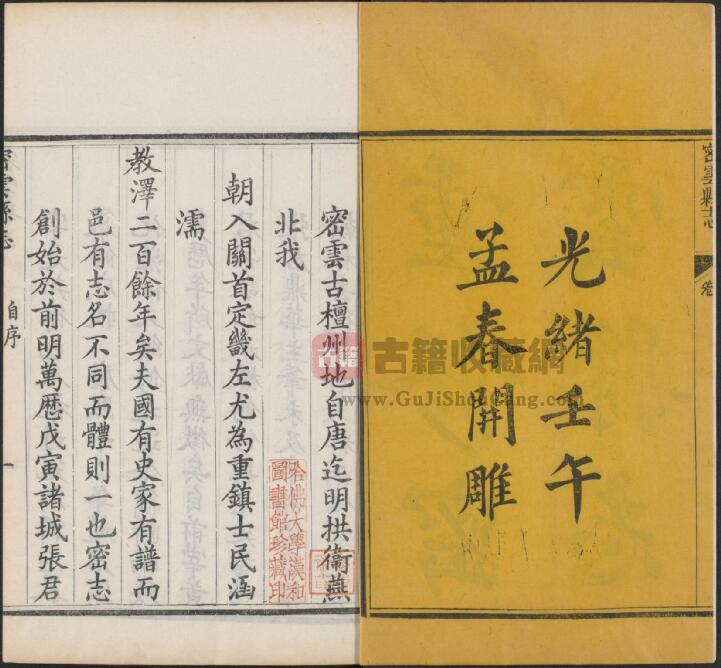 光緒壬午
孟春開雕
密雲縣志
卷
密雲古檀州地自唐迄明拱衞燕
北我
朝入關首定畿左尤為重鎮士民涵
濡
教澤二百餘年矣夫國有史家有譜而
邑有志名不同而體則一也密志
創始於前明萬厯戊寅諸城張君
密雲縣志
自序
一
哈佛大學漢和
圖書館珍藏印
古籍
古籍收藏網
www.GuJiShouCang.com